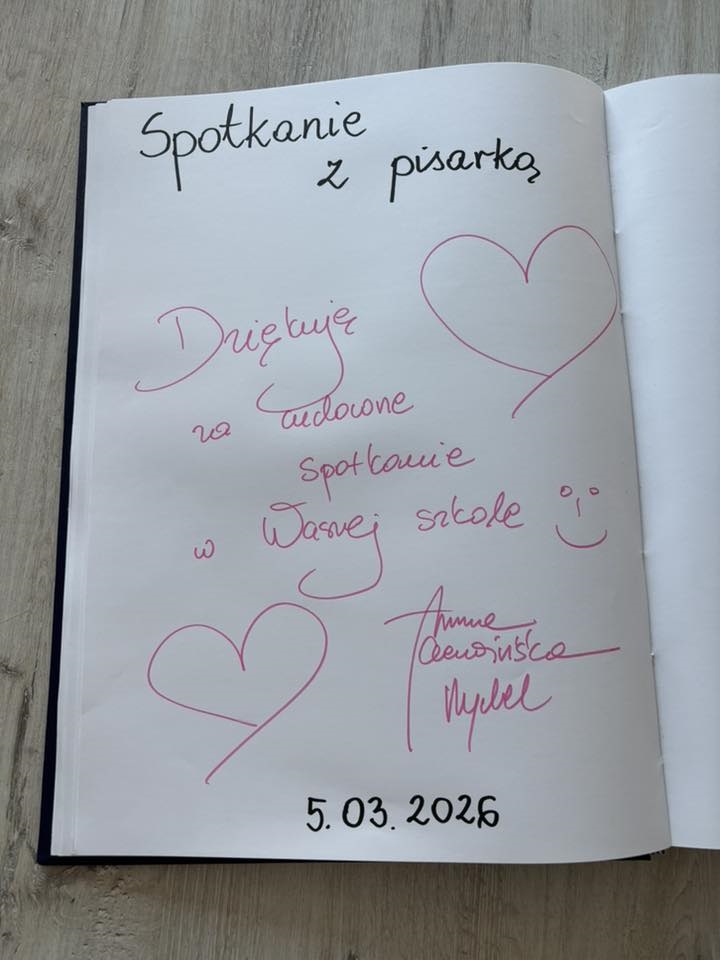 Spotkanie
z pisarką
Dziękuję
za cudowne
spotkanie
w Waszej szkole
Anna
Czerwińska
Rydel
5.03.2026